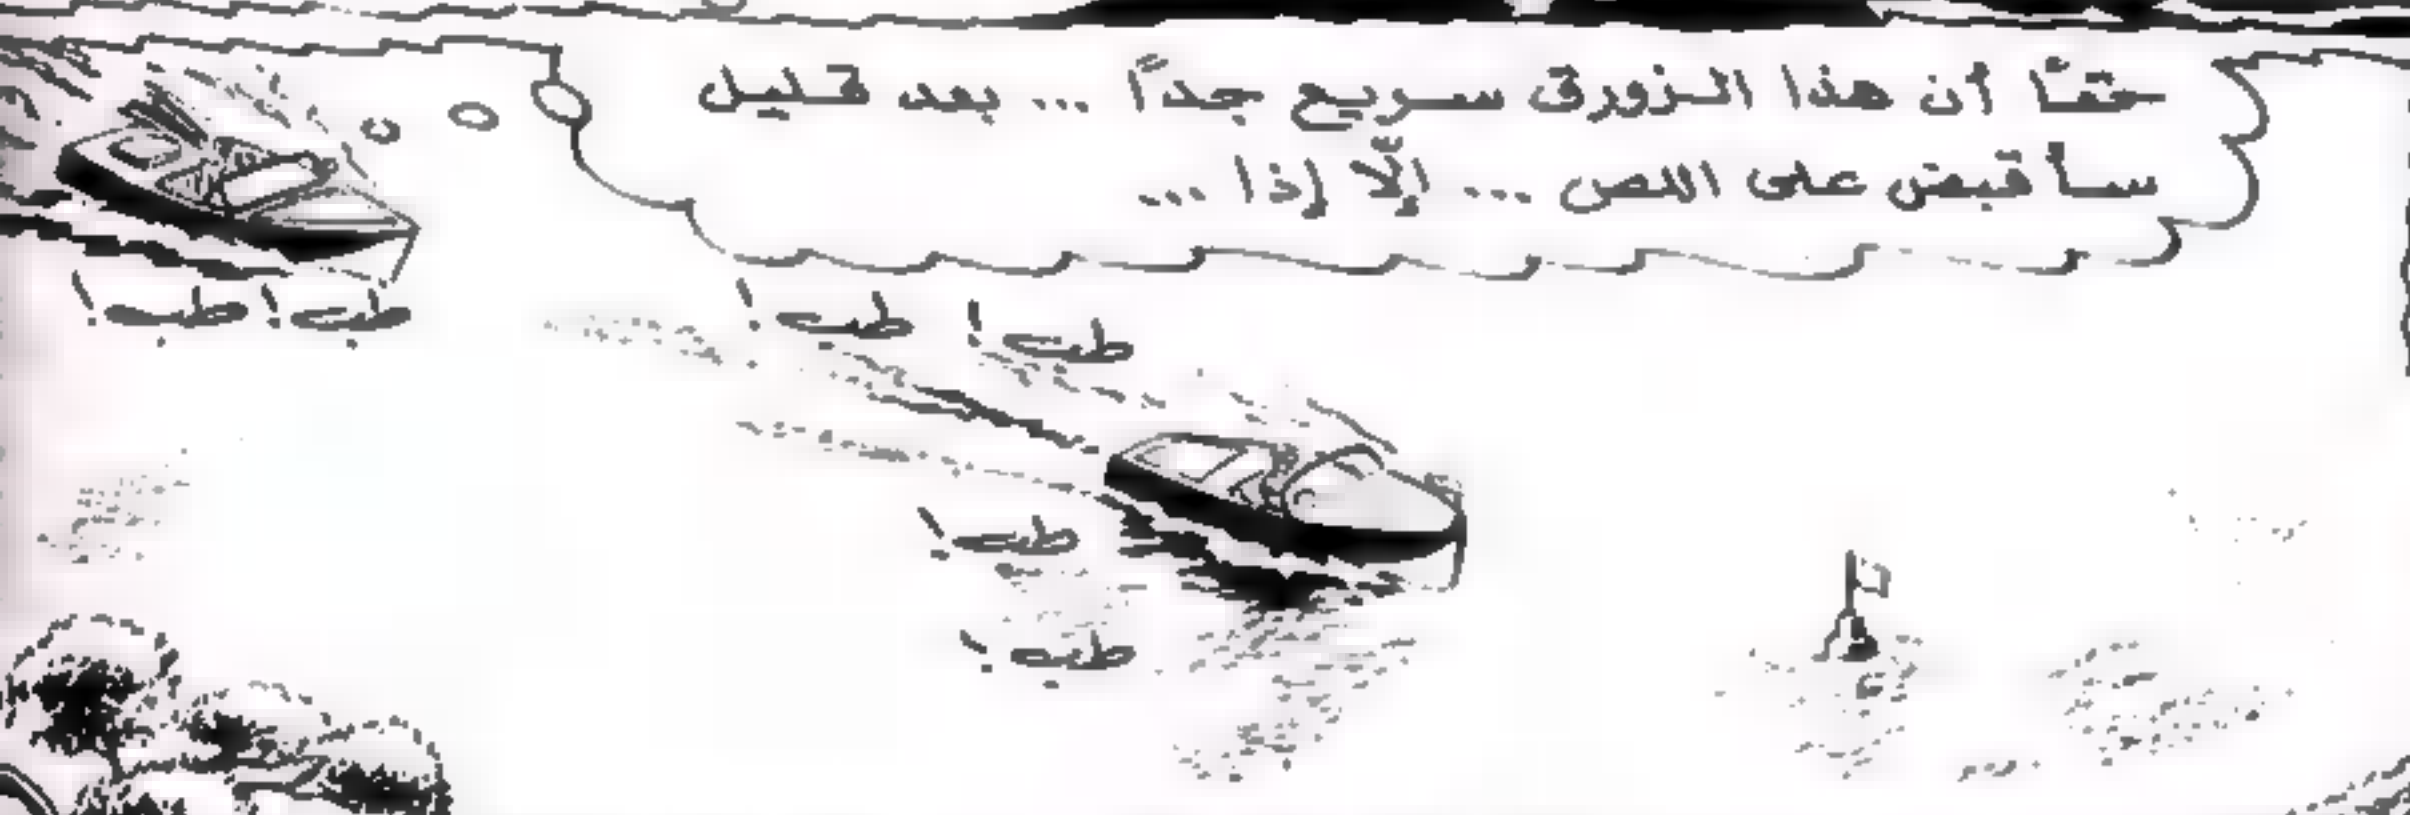 حقاً أن هذا الزورق سريع جداً ... بعد قليل
سأقبض على اللص ... إلّا إذا ...
طب! طب!
طب! طب!
طب!
طب!